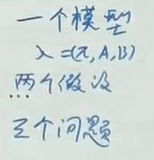 一个模型
λ=(π,A,B)
两个假设
三个问题